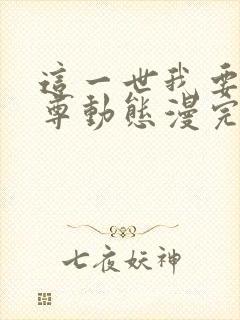 這一世我要
尊動態漫完
七夜妖神